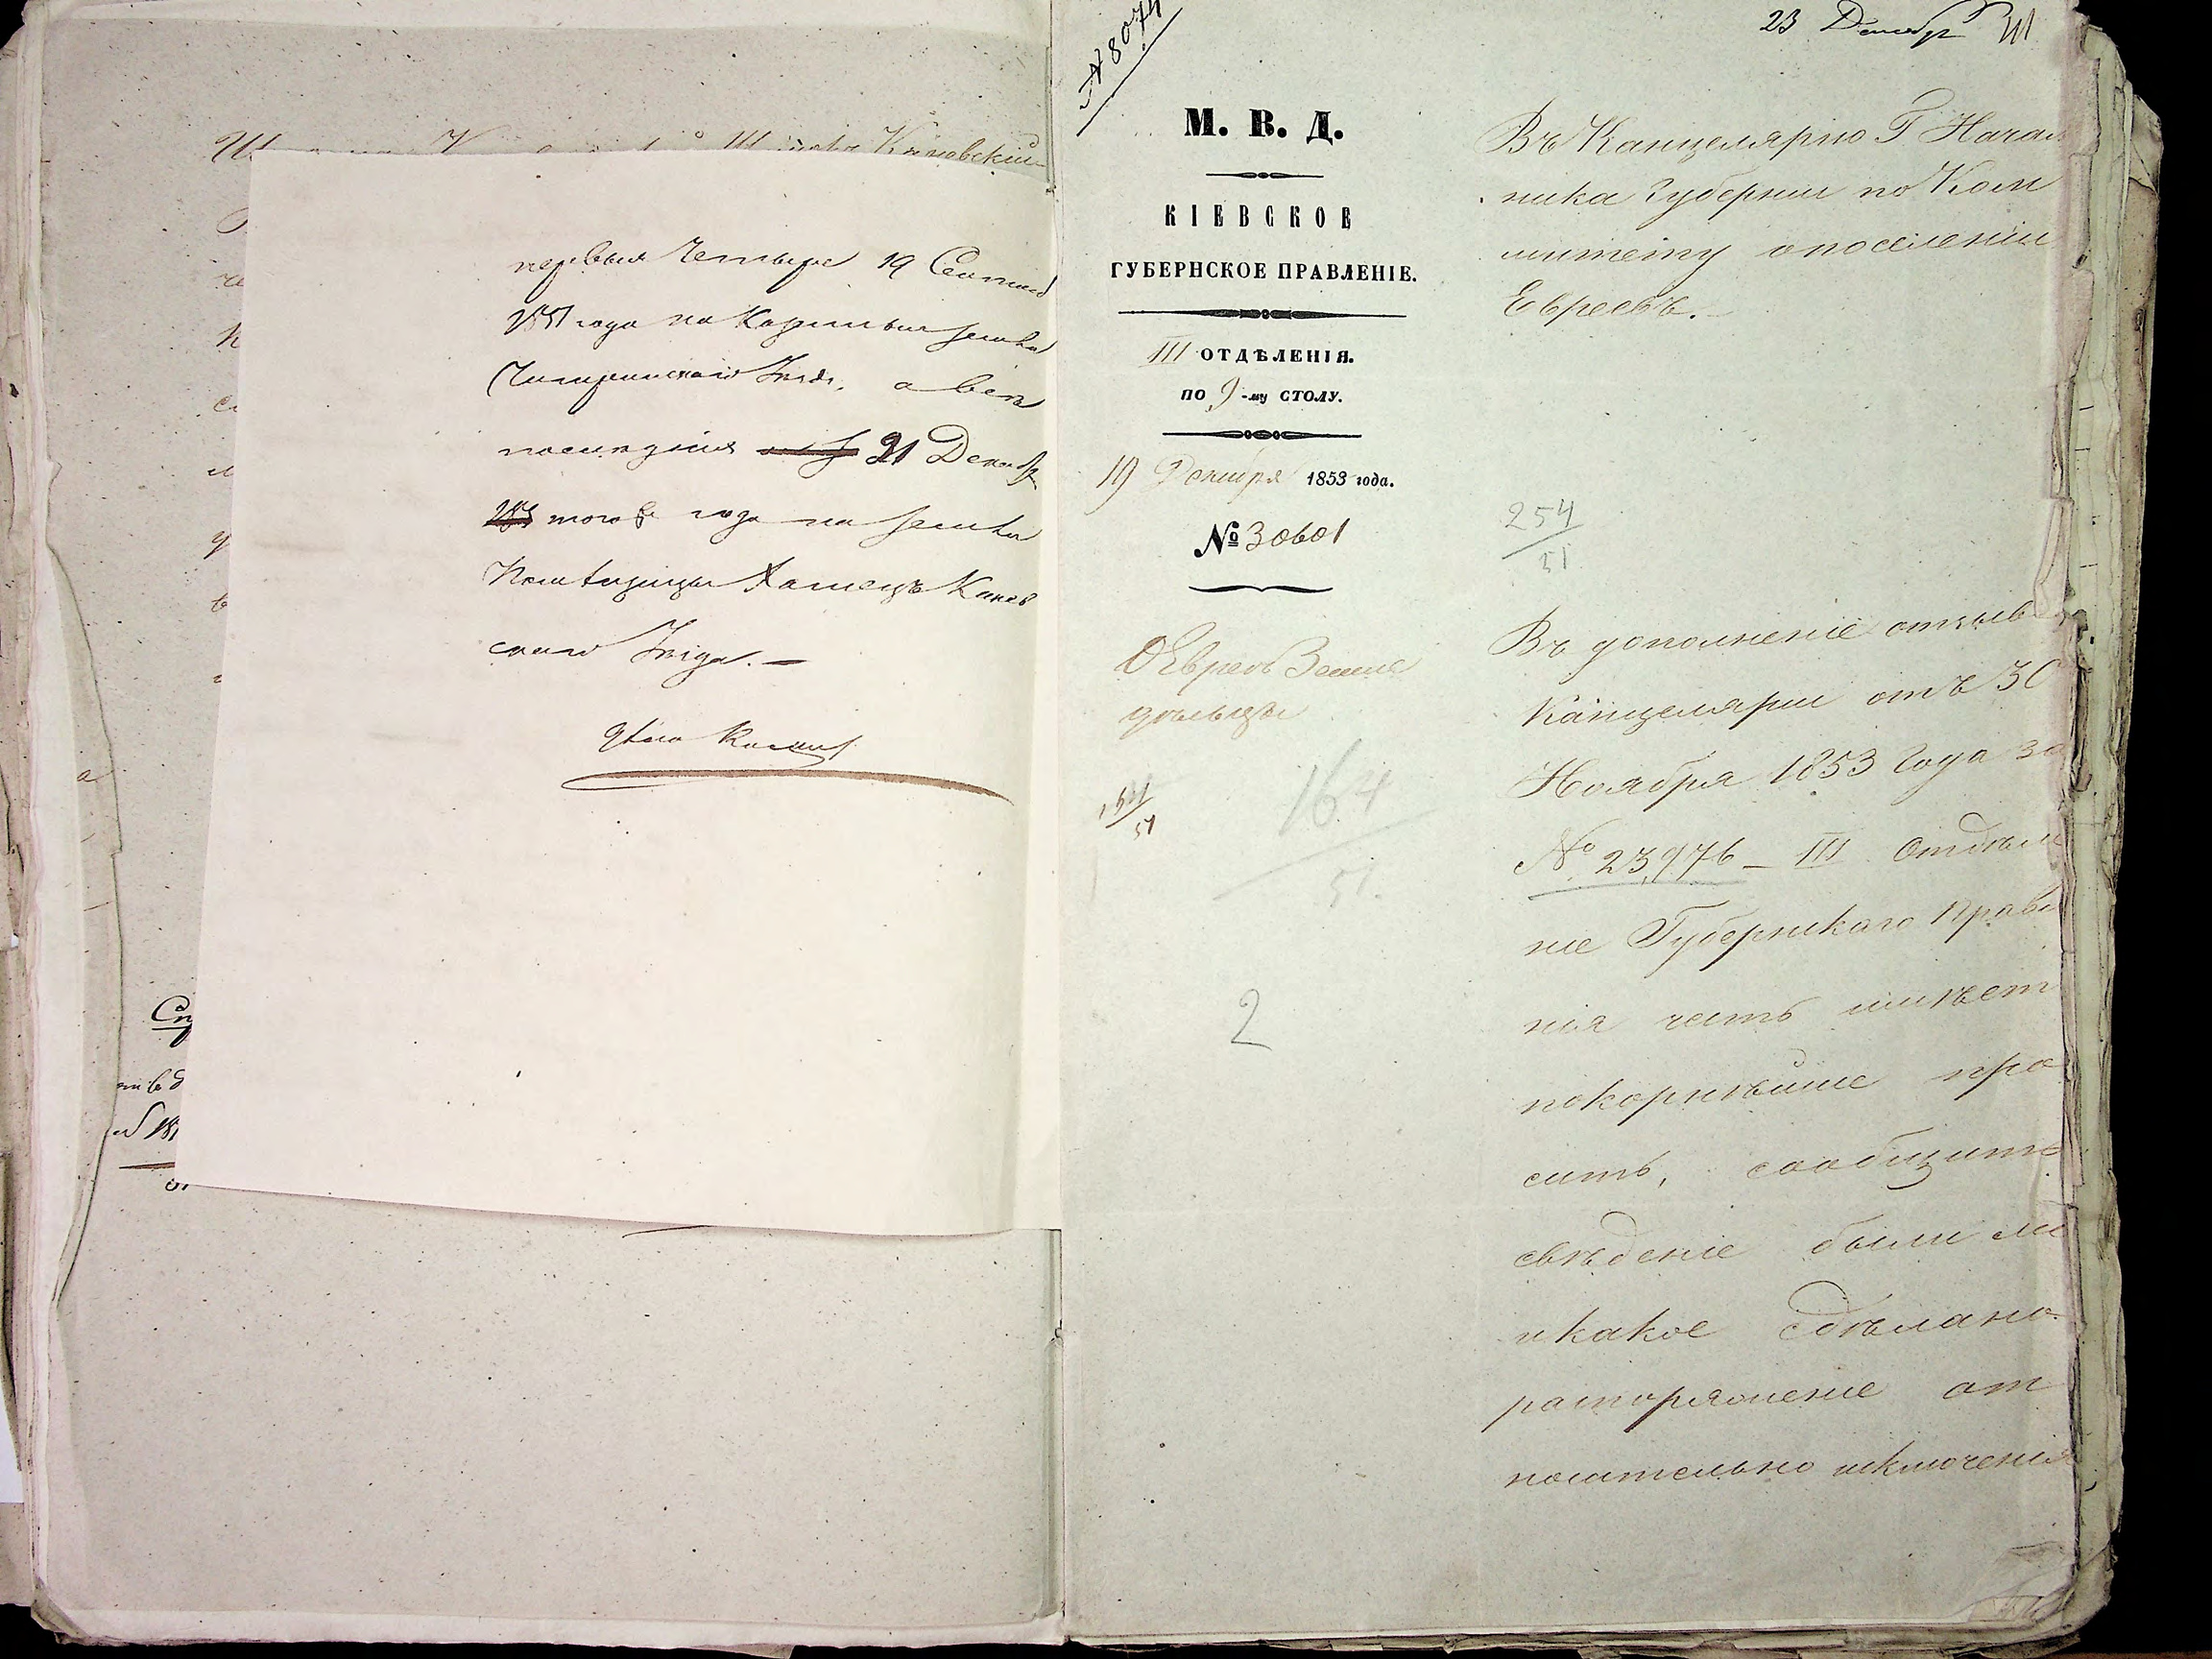 Кіновскій
первыя Четыре 19 Сентяб
1851 года на Казенныя земли
Чигиринскаго Уезда, а всѣ
последнія 21 Декаб
того же года на земли
Помѣщицы Канев
скаго Уезда. —
Сп
№ 8074
М. В. Д.
КІЕВСКОЕ
ГУБЕРНСКОЕ ПРАВЛЕНІЕ.
III ОТДѢЛЕНІЯ.
ПО 9-му СТОЛУ.
19 Декабря 1853 года.
№ 30601
О Евреѣ Земле
дѣльцѣ
164
51
164
51.
2
23 Декабр
Въ Канцелярію Г. Началь
ника Губерніи по Ком
митету о поселеніи
Евреевъ.
254
51
Въ дополненіе отзыв
Канцеляріи отъ 30
Ноября 1853 года за
№ 23,976 — III Отдѣле
ніе Губернскаго Правле
нія честь имѣет
покорнѣйше про
сить, сообщить
свѣденіе были ли
и какое сдѣлано
распоряженіе от
носительно исключенія